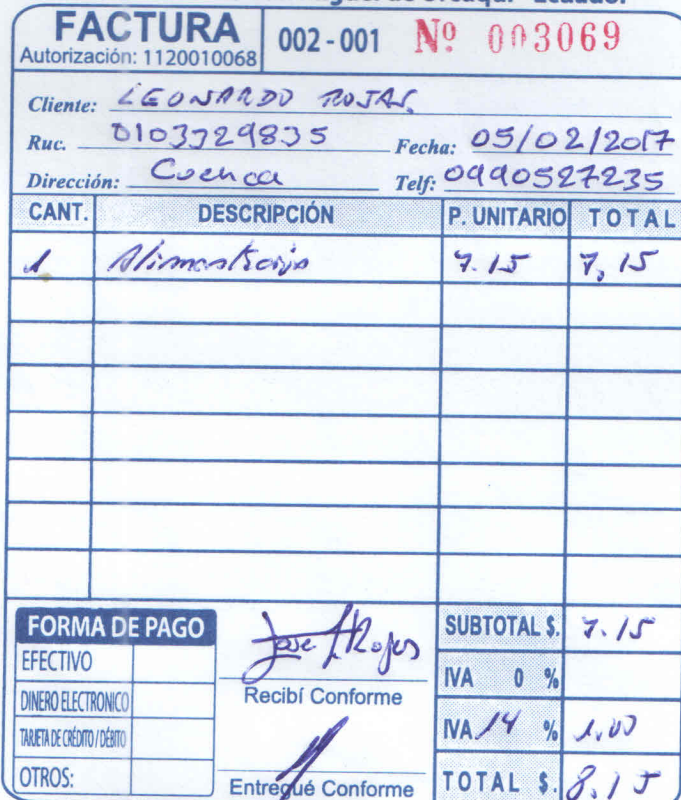 de Urcuquí - Ecuador
FACTURA
Autorización: 1120010068
002 - 001 Nº 003069
Cliente: LEONARDO ROJAS
Ruc. 0103729835 Fecha: 05/02/2017
Dirección: Cuenca Telf: 0990527235
CANT. DESCRIPCIÓN P. UNITARIO TOTAL
1 Alimentación 7.15 7,15
FORMA DE PAGO
EFECTIVO
DINERO ELECTRONICO
TARJETA DE CRÉDITO / DÉBITO
OTROS:
Jose Rojas
Recibí Conforme
Entregué Conforme
SUBTOTAL $. 7.15
IVA 0 %
IVA 14 % 1.00
TOTAL $. 8.15